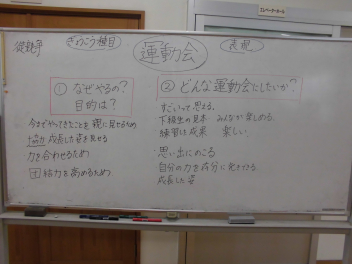 エレベーターホール
徒競争
きょうぎ種目
運動会
表現
① なぜやるの?
目的は?
今までやってきたことを親に見せるため
協力 成長した姿を見せる
力を合わせるため
団結力を高めるため
② どんな運動会にしたいか?
すごいって思える。
下級生の見本 みんなが楽しめる
練習の成果 楽しい
思い出にのこる
自分の力を存分に発きできる
成長した姿